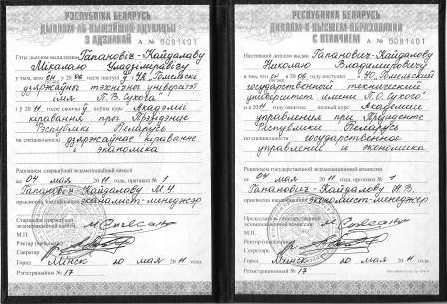 РЭСПУБЛІКА БЕЛАРУСЬ
ДЫПЛОМ АБ ВЫШЭЙШАЙ АДУКАЦЫІ
З АДЗНАКАЙ
А № 0081401
Гэты дыплом выдадзены Гапановіч-Кайдалаву
Мікалаю Уладзіміравічу
у тым, што ён у 2006 годзе паступіў у УА Гомельскі
дзяржаўны тэхнічны універсітэт
імя П.В. Сухога
і ў 2011 скончыў Акадэмію
кіравання пры Прэзідэнце
Рэспублікі Беларусь
па спецыяльнасці дзяржаўнае кіраванне
і эканоміка
Рашэннем дзяржаўнай экзаменацыйнай камісіі
ад 04 мая 2011 года, пратакол № 1
Гапановіч-Кайдалаву М.У.
прысвоена кваліфікацыя эканаміст-менеджэр
Старшыня дзяржаўнай
экзаменацыйнай камісіі
М.П.
Рэктар
Сакратар
Горад Мінск 10 мая 2011
Рэгістрацыйны № 17
РЕСПУБЛИКА БЕЛАРУСЬ
ДИПЛОМ О ВЫСШЕМ ОБРАЗОВАНИИ
С ОТЛИЧИЕМ
А № 0081401
Настоящий диплом выдан Гапанович-Кайдалову
Николаю Владимировичу
в том, что он в 2006 году поступил в УО Гомельский
государственный технический
университет имени П.О. Сухого
и в 2011 окончил Академию
управления при Президенте
Республики Беларусь
по специальности государственное
управление и экономика
Решением государственной экзаменационной комиссии
от 04 мая 2011 года, протокол № 1
Гапанович-Кайдалову Н.В.
присвоена квалификация экономист-менеджер
Председатель государственной
экзаменационной комиссии
М.П.
Ректор
Секретарь
Город Минск 10 мая 2011
Регистрационный № 17